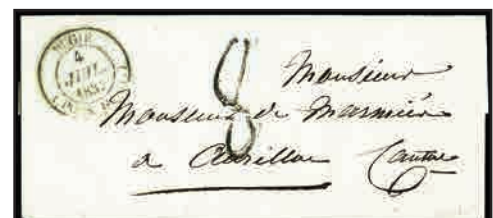 4
JUIL.
1852
8
Monsieur
Monsieur de Marmiés
à Aurillac Cantal